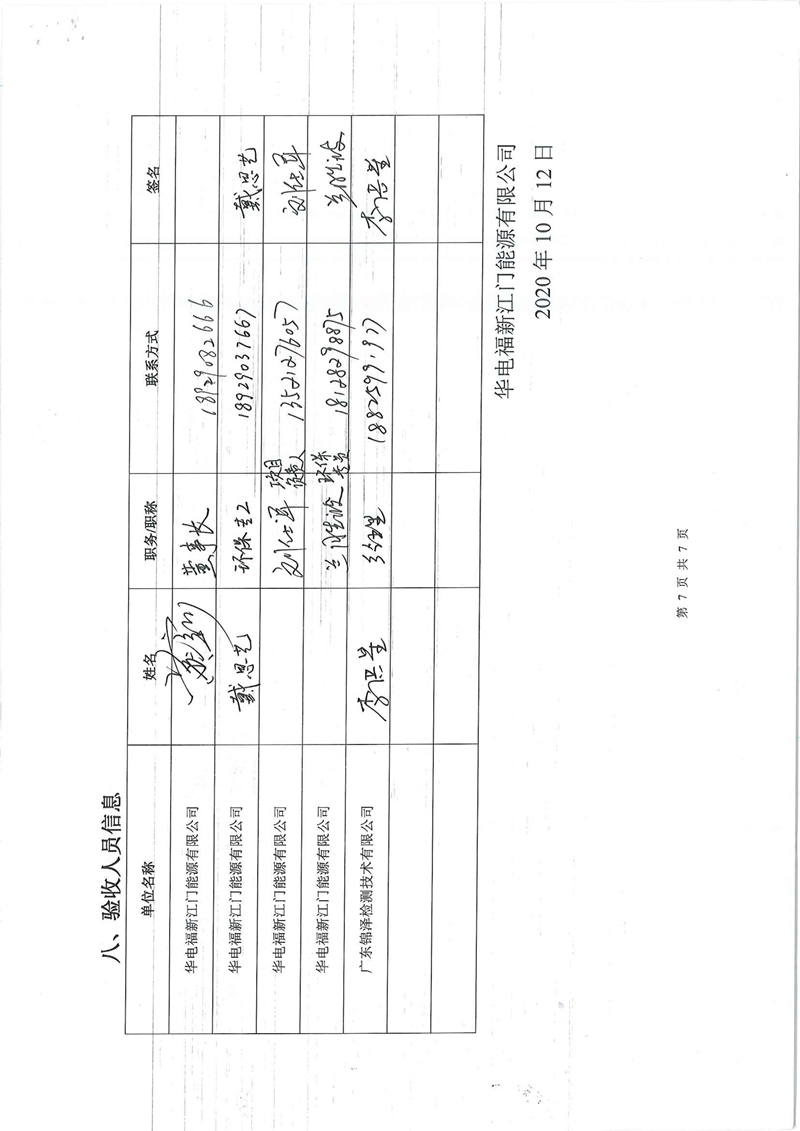 八、验收人员信息
单位名称 姓名 职务/职称 联系方式 签名
华电福新江门能源有限公司 董事长 18929082666
华电福新江门能源有限公司 戴思艺 环保专工 18929037667 戴思艺
华电福新江门能源有限公司 刘仕军 项目负责人 13521276057 刘仕军
华电福新江门能源有限公司 环保专员 18128298875
广东锦泽检测技术有限公司 李洪星 经理 18825991977 李洪星
华电福新江门能源有限公司
2020 年 10 月 12 日
第 7 页 共 7 页